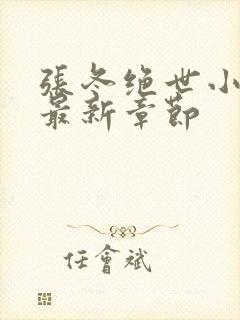 張冬绝世小
最新章節
任會斌